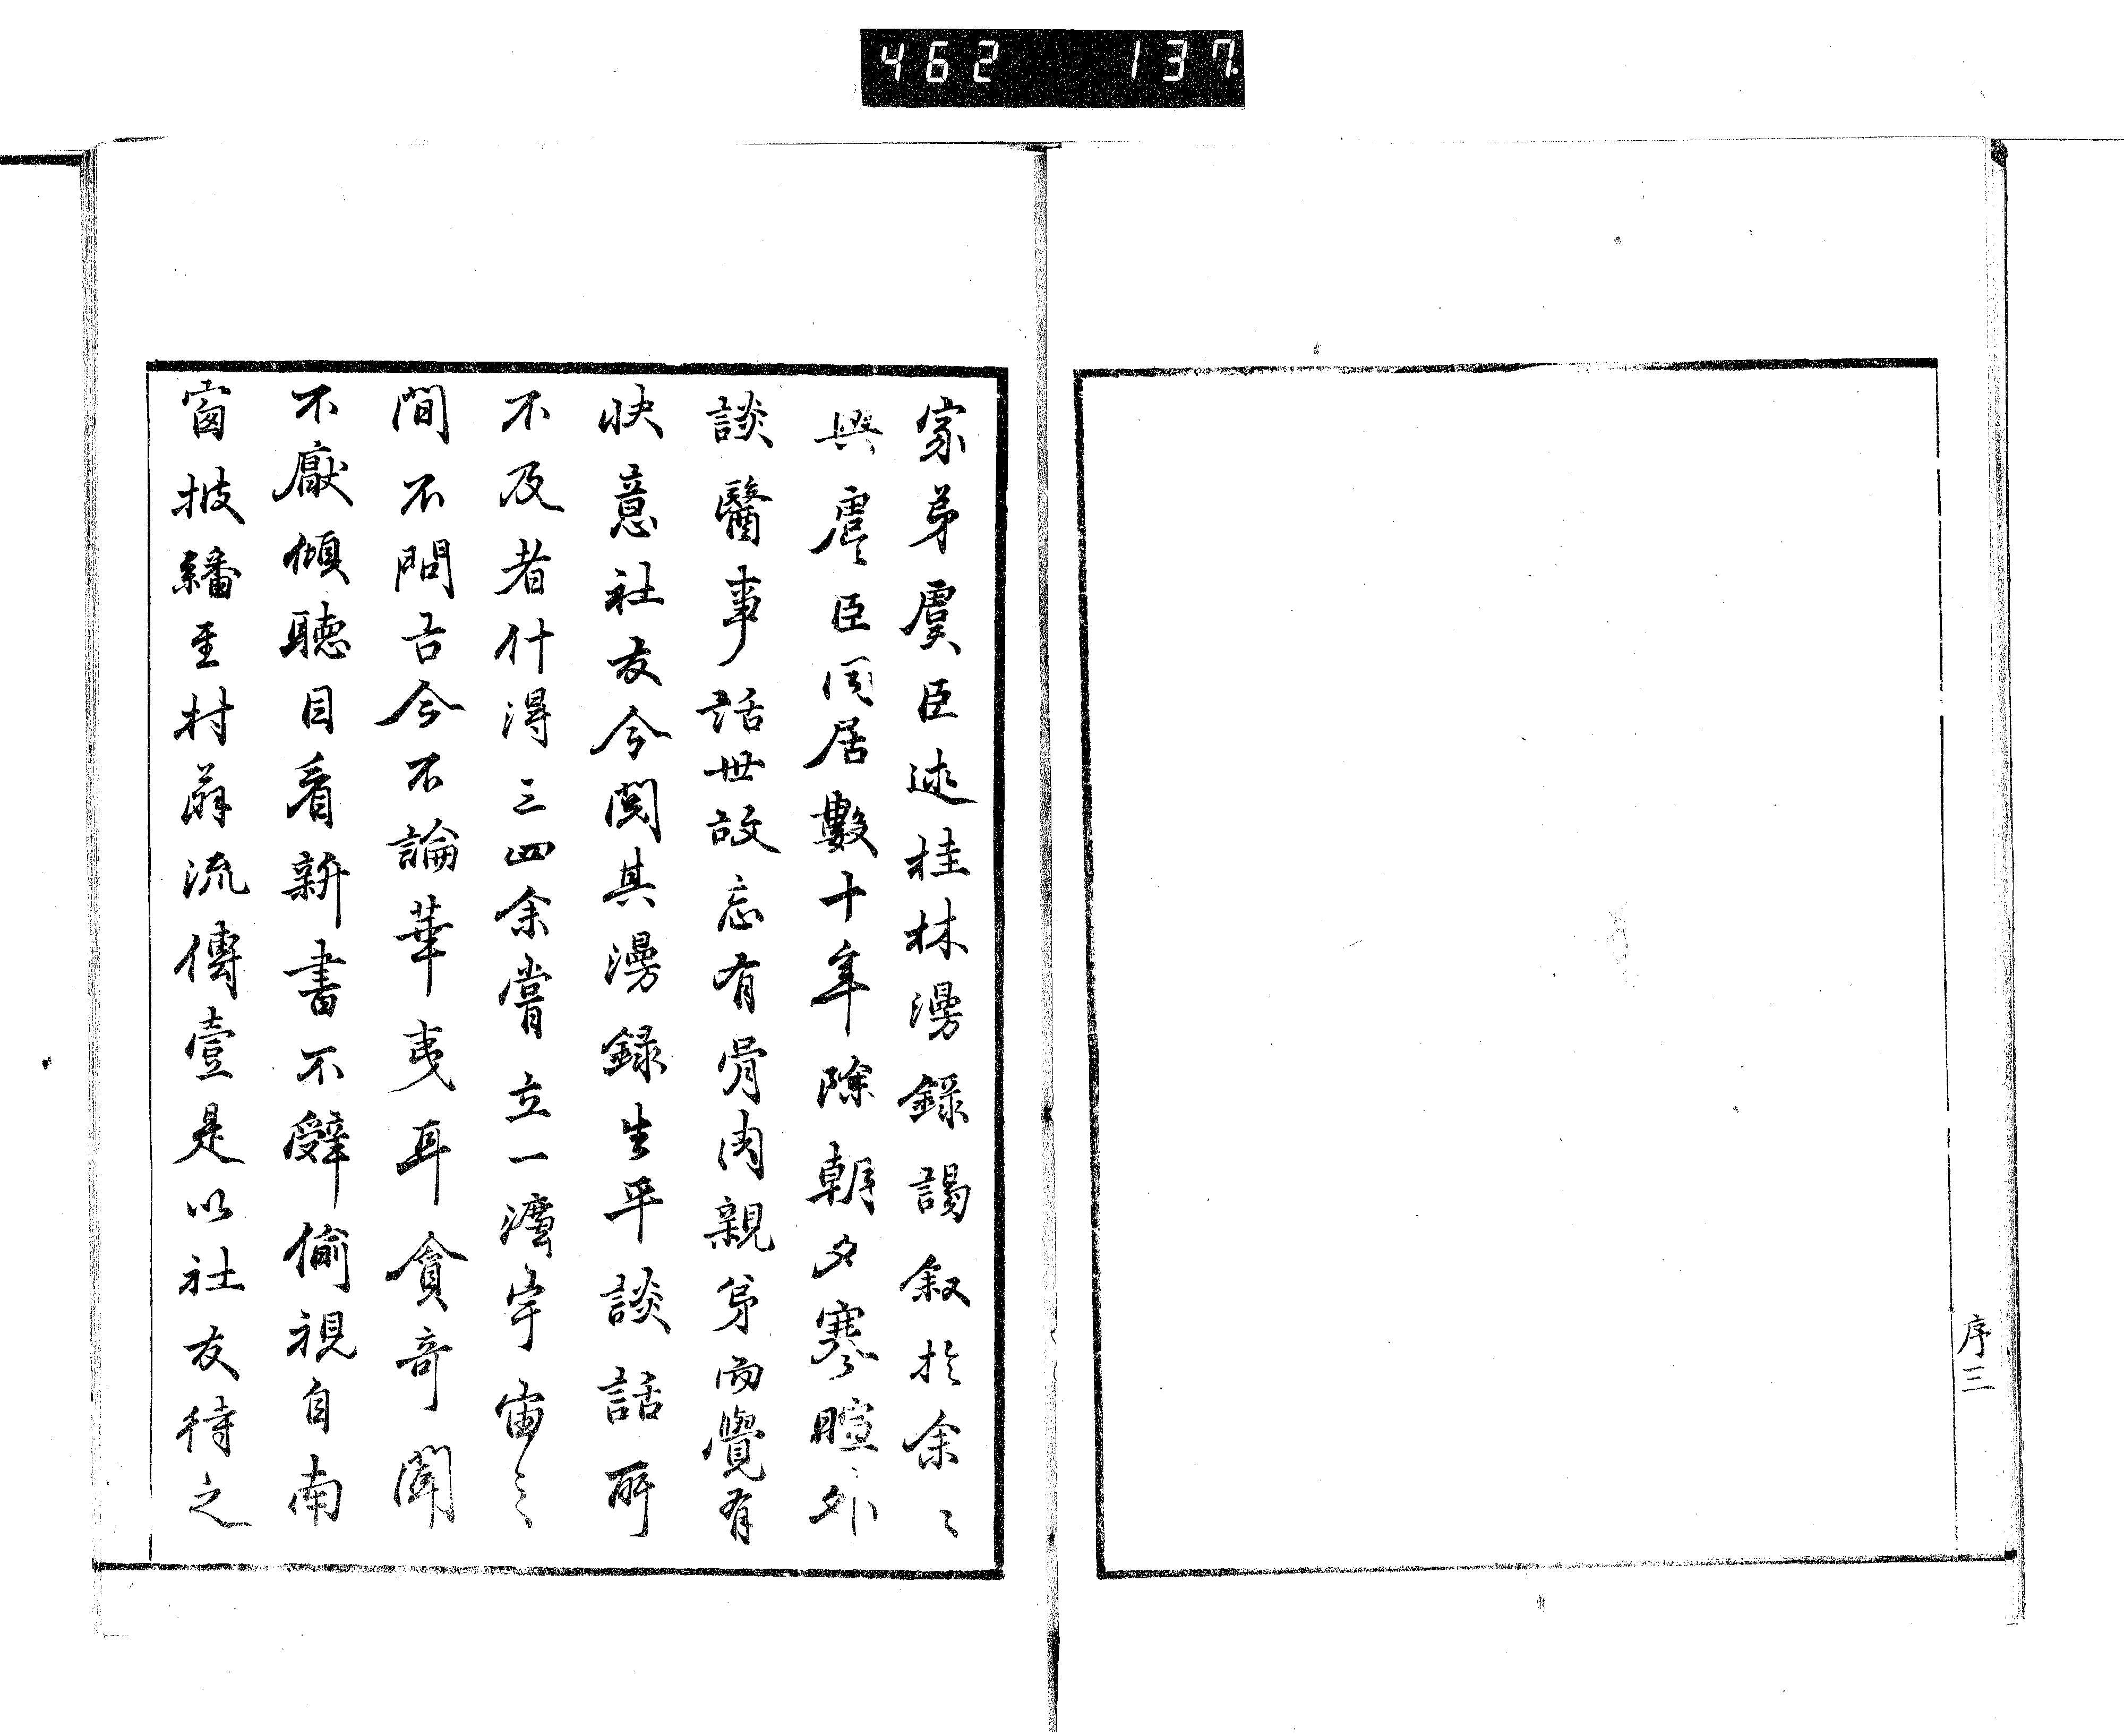 462 137
序三
家弟虞臣述桂林漫錄謁叙於余〻
與虞臣同居數十年除朝夕寒暄外
談醫事話世故忘有骨肉親弟而覺有
快意社友今閱其漫録生平談話所
不及者什得三四余嘗立一濤宇宙之
間不問古今不論華夷耳貪奇聞
不厭傾聽目看新書不辭偷視自南
窗披繙至村 流傳壹是以社友待之